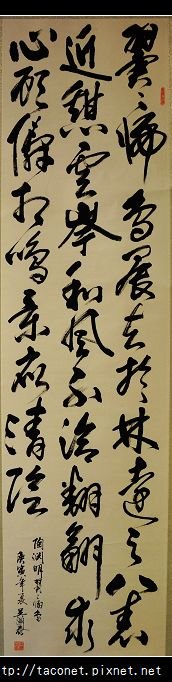 翼〻歸鳥晨去於林遠之八表
近憩雲岑和風不洽翻翮求
心顧儔相鳴景庇清陰
陶渊明翼〻歸鳥
庚寅年夏吳
http://taconet.pixnet.net